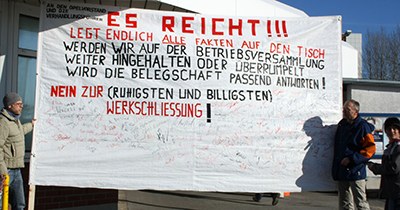 AN DEN OPELVORSTAND
UND DIE
VERHANDLUNGSFÜHRER
ES REICHT!!!
LEGT ENDLICH ALLE FAKTEN AUF DEN TISCH
WERDEN WIR AUF DER BETRIEBSVERSAMMLUNG
WEITER HINGEHALTEN ODER ÜBERRUMPELT
WIRD DIE BELEGSCHAFT PASSEND ANTWORTEN!
NEIN ZUR (RUHIGSTEN UND BILLIGSTEN)
WERKSCHLIESSUNG!